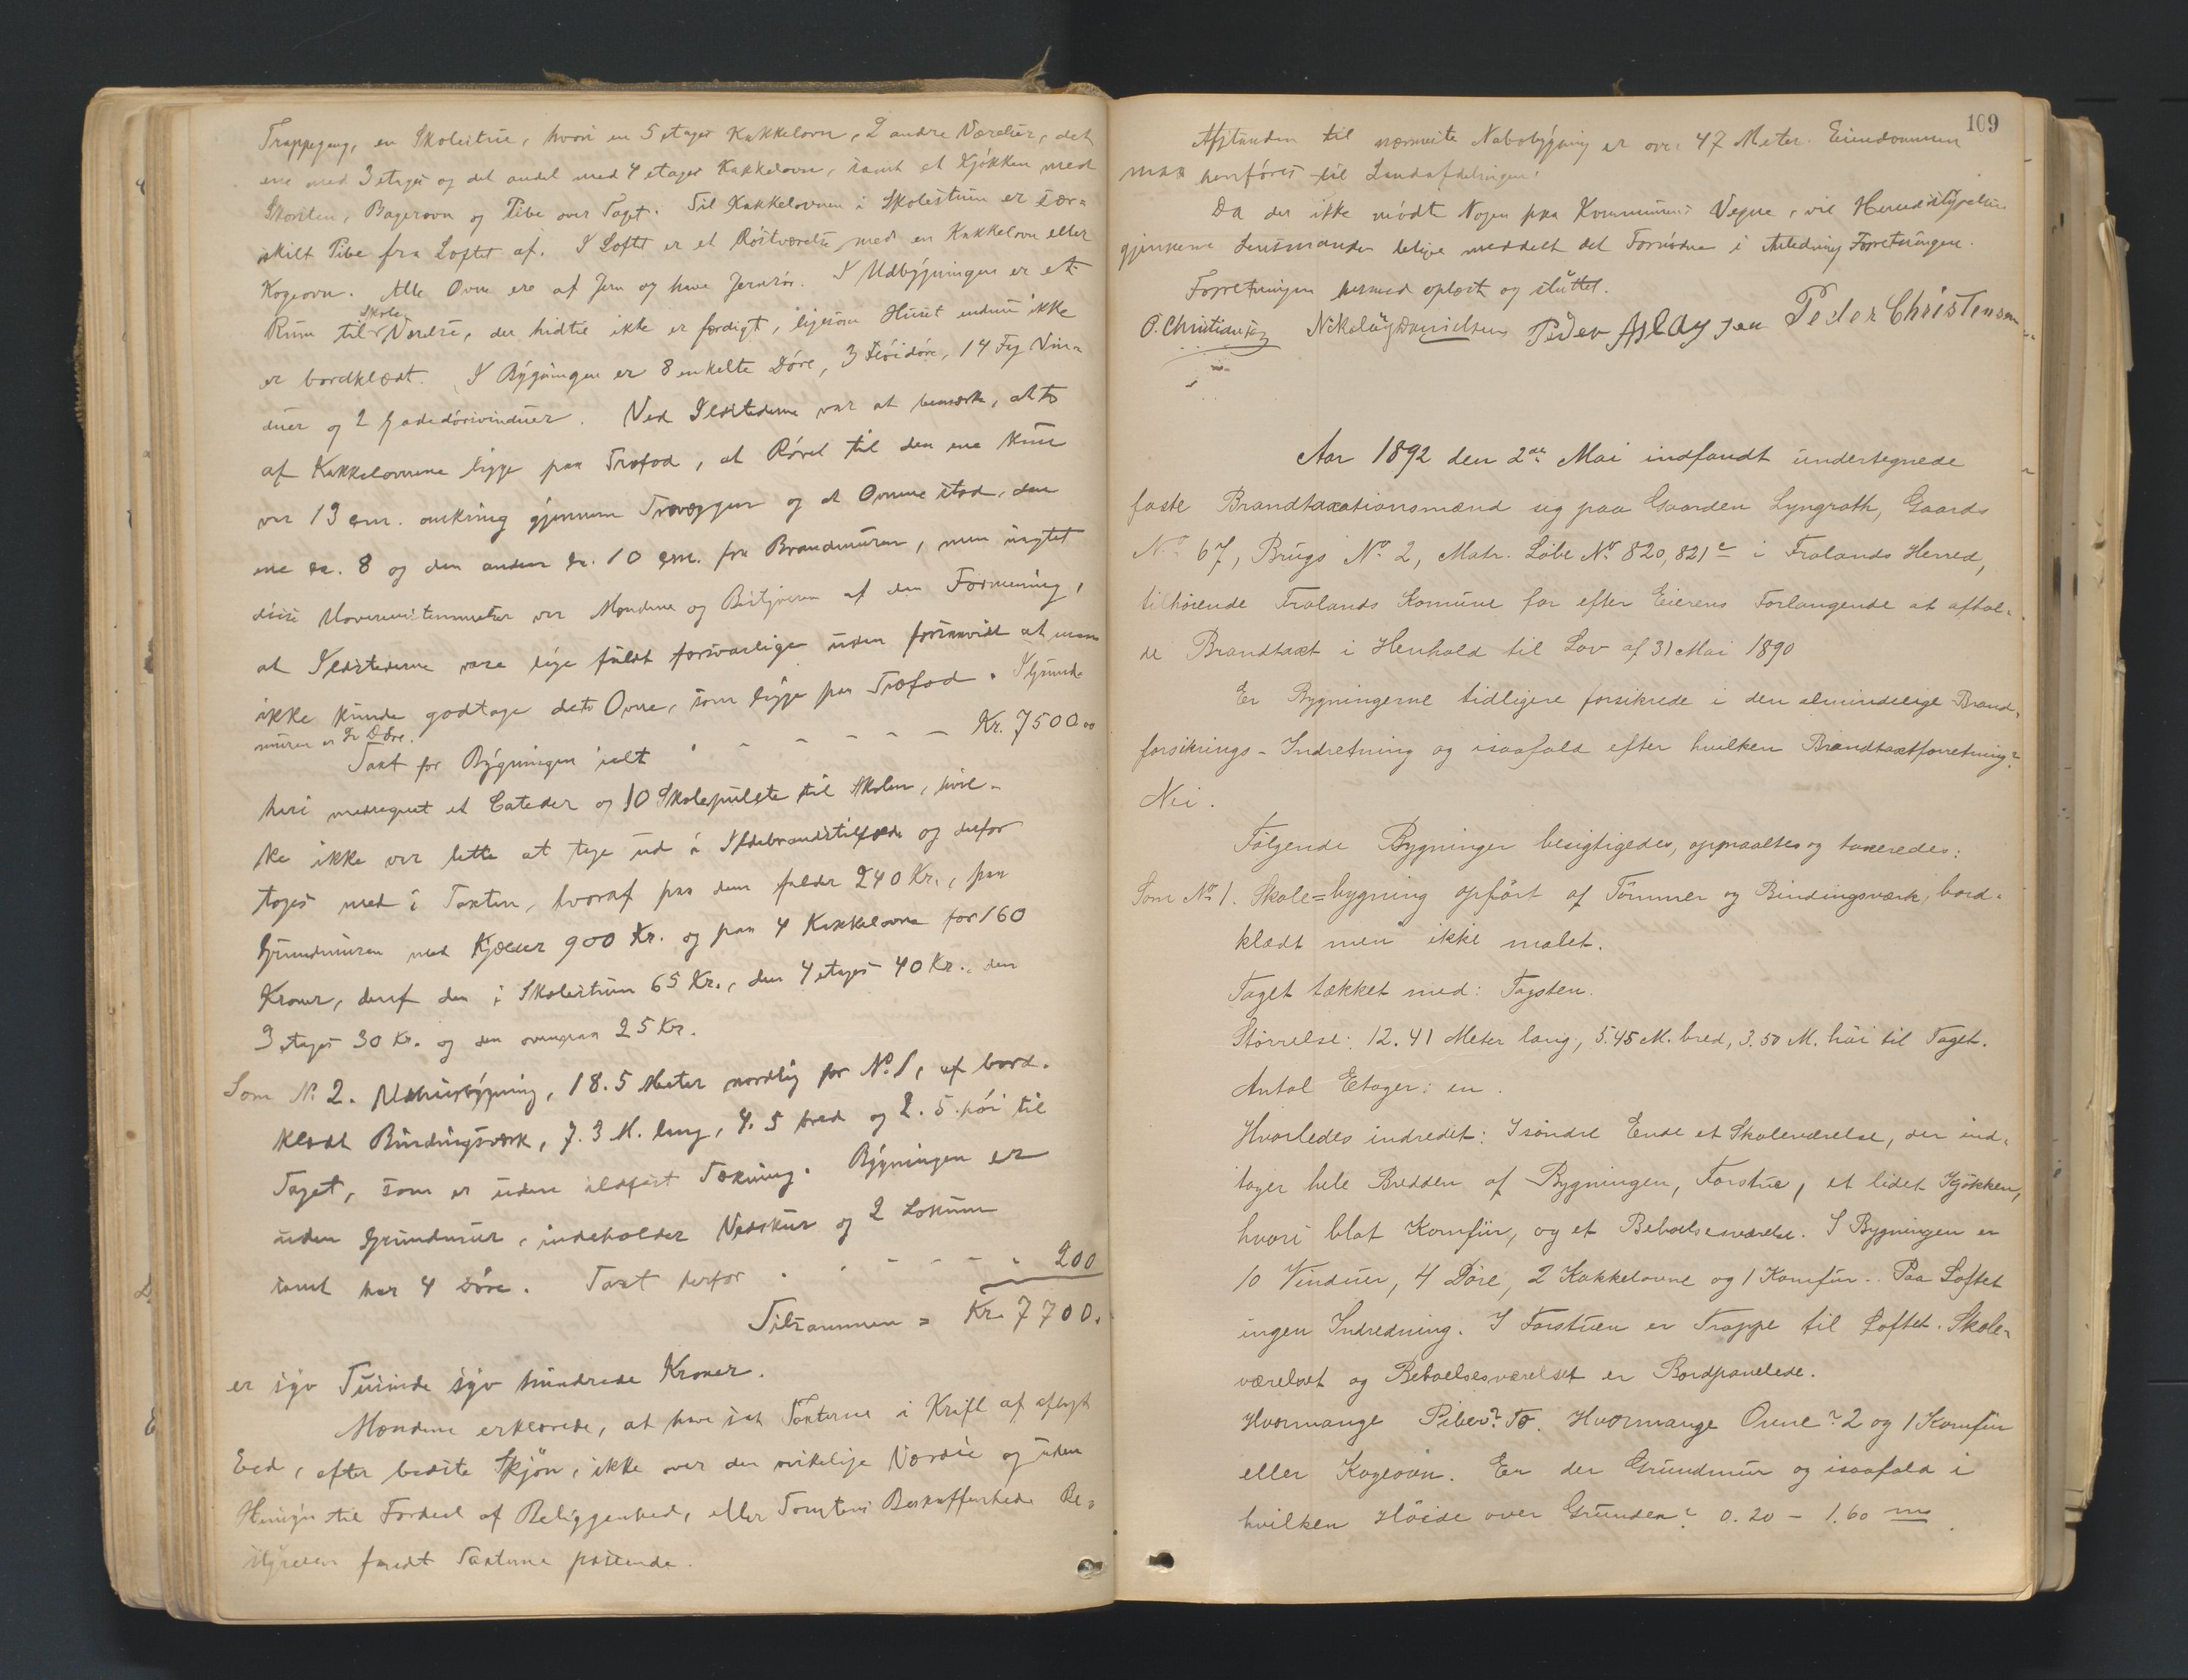 Trappegang, en Skolestue, hvori en 5 etages Kakkelovn, 2 andre Værelser, det
ene med 3 etages og det andet med 4 etages Kakkelovn, samt et Kjøkken med
Skorsten, Bagerovn og Pibe over Taget. Til Kakkelovnen i Skolestuen er sær=
skilt Pibe fra Loftet af. I Loftet er et Kvistværelse med en Kakkelovn eller
Kogeovn. Alle Ovne ere af Jern og have Jernrør. I Udbygningen er et
Rum til Skole Værelse, der hidtil ikke er færdigt, ligesom Huset endnu ikke
er bordklædt. I Bygningen er 8 enkelte Døre, 3 Fløidøre, 14 Fag Vin=
duer og 2 Gadedørsvinduer. Ved Ildstederne var at bemærke, at to
af Kakkelovnene ligge paa Træfod, at Røret til den ene kun
var 13 cm. omkring gjennem Trævæggen og at Ovnene stod, den
ene ca. 8 og den anden ca. 10 cm. fra Brandmuren, men uagtet
disse Uoverensstemmelser var Mændene og Bestyreren af den Formening,
at Ildstederne vare lige fuldt forsvarlige uden forsaavidt at man
ikke kunde godtage de to Ovne, som ligge paa Træfod. I Grund-
muren er to Døre.
Taxt for Bygningen ialt - - - - - - Kr. 7500.00
heri medregnet et Cateder og 10 Skolepulte til Skolen, hvil-
ke ikke var lette at tage ud i Ildebrandstilfælde og derfor
toges med i Taxten, hvoraf paa dem falder 240 Kr., paa
Grundmuren med Kjælder 900 Kr. og paa 4 Kakkelovne for 160
Kroner, deraf den i Skolestuen 65 Kr., den 4 etages 40 Kr., den
3 etages 30 Kr. og den ovenpaa 25 Kr.
Som No 2. Udhusbygning, 18.5 Meter nordlig for No 1, af bord-
klædt Bindingsværk, 7.3 M. lang, 4.5 bred og 2.5 høi til
Taget, som er uden ildfast Tækning. Bygningen er
uden Grundmur, indeholder Vedskur og 2 Lokum
samt har 4 Døre. Taxt herfor - - - - - 200
Tilsammen = Kr. 7700.
er syv Tusinde syv hundrede Kroner.
Mændene erklærede, at have sat Taxterne i Kraft af aflagt
Eed, efter bedste Skjøn, ikke over den virkelige Værdie og uden
Hensyn til Fordeel af Beliggenhed, eller Tomtens Beskaffenhed. Be=
styreren fandt Taxterne passende.
109
Afstanden til nærmeste Nabobygning er over 47 Meter. Eiendommen
maa henføres til Landafdelingen.
Da der ikke mødte Nogen paa Kommunens Vegne, vil Herredsstyrelsen
gjennem Lensmanden blive meddelt det Fornødne i Anledning Forretningen.
Forretningen hermed oplæst og sluttet.
O. Christensen Nikolay Danielsen Peder Aslagsen Peder Christensen
Aar 1892 den 2den Mai indfandt undertegnede
faste Brandtaxationsmænd sig paa Gaarden Lyngroth, Gaards
No 67, Brugs No 2, Matr. Løbe No 820, 821c i Frolands Herred,
tilhørende Frolands Komune for efter Eierens Forlangende at afhol-
de Brandtaxt i Henhold til Lov af 31 Mai 1890
Er Bygningerne tidligere forsikrede i den almindelige Brand-
forsikrings-Indretning og isaafald efter hvilken Brandtaxtforretning?
Nei.
Følgende Bygninger besigtigedes, opmaaltes og taxeredes:
Som No 1. Skole=bygning opført af Tømmer og Bindingsværk, bord-
klædt men ikke malet.
Taget tækket med: Tagsten.
Størrelse: 12.41 Meter lang, 5.45 M. bred, 3.50 M. høi til Taget.
Antal Etager: en.
Hvorledes indredet: I søndre Ende et Skoleværelse, der ind-
tager hele Bredden af Bygningen, Forstue, et lidet Kjøkken,
hvori blot Komfür, og et Beboelsesværelse. I Bygningen er
10 Vinduer, 4 Døre, 2 Kakkelovne og 1 Komfür. Paa Loftet
ingen Indredning. I Forstuen er Trappe til Loftet. Skole-
værelset og Beboelsesværelset er Bordpanelede.
Hvormange Piber? To. Hvormange Ovne? 2 og 1 Komfür
eller Kogeovn. Er der Grundmur og isaafald i
hvilken Høide over Grunden? 0.20 - 1.60 m